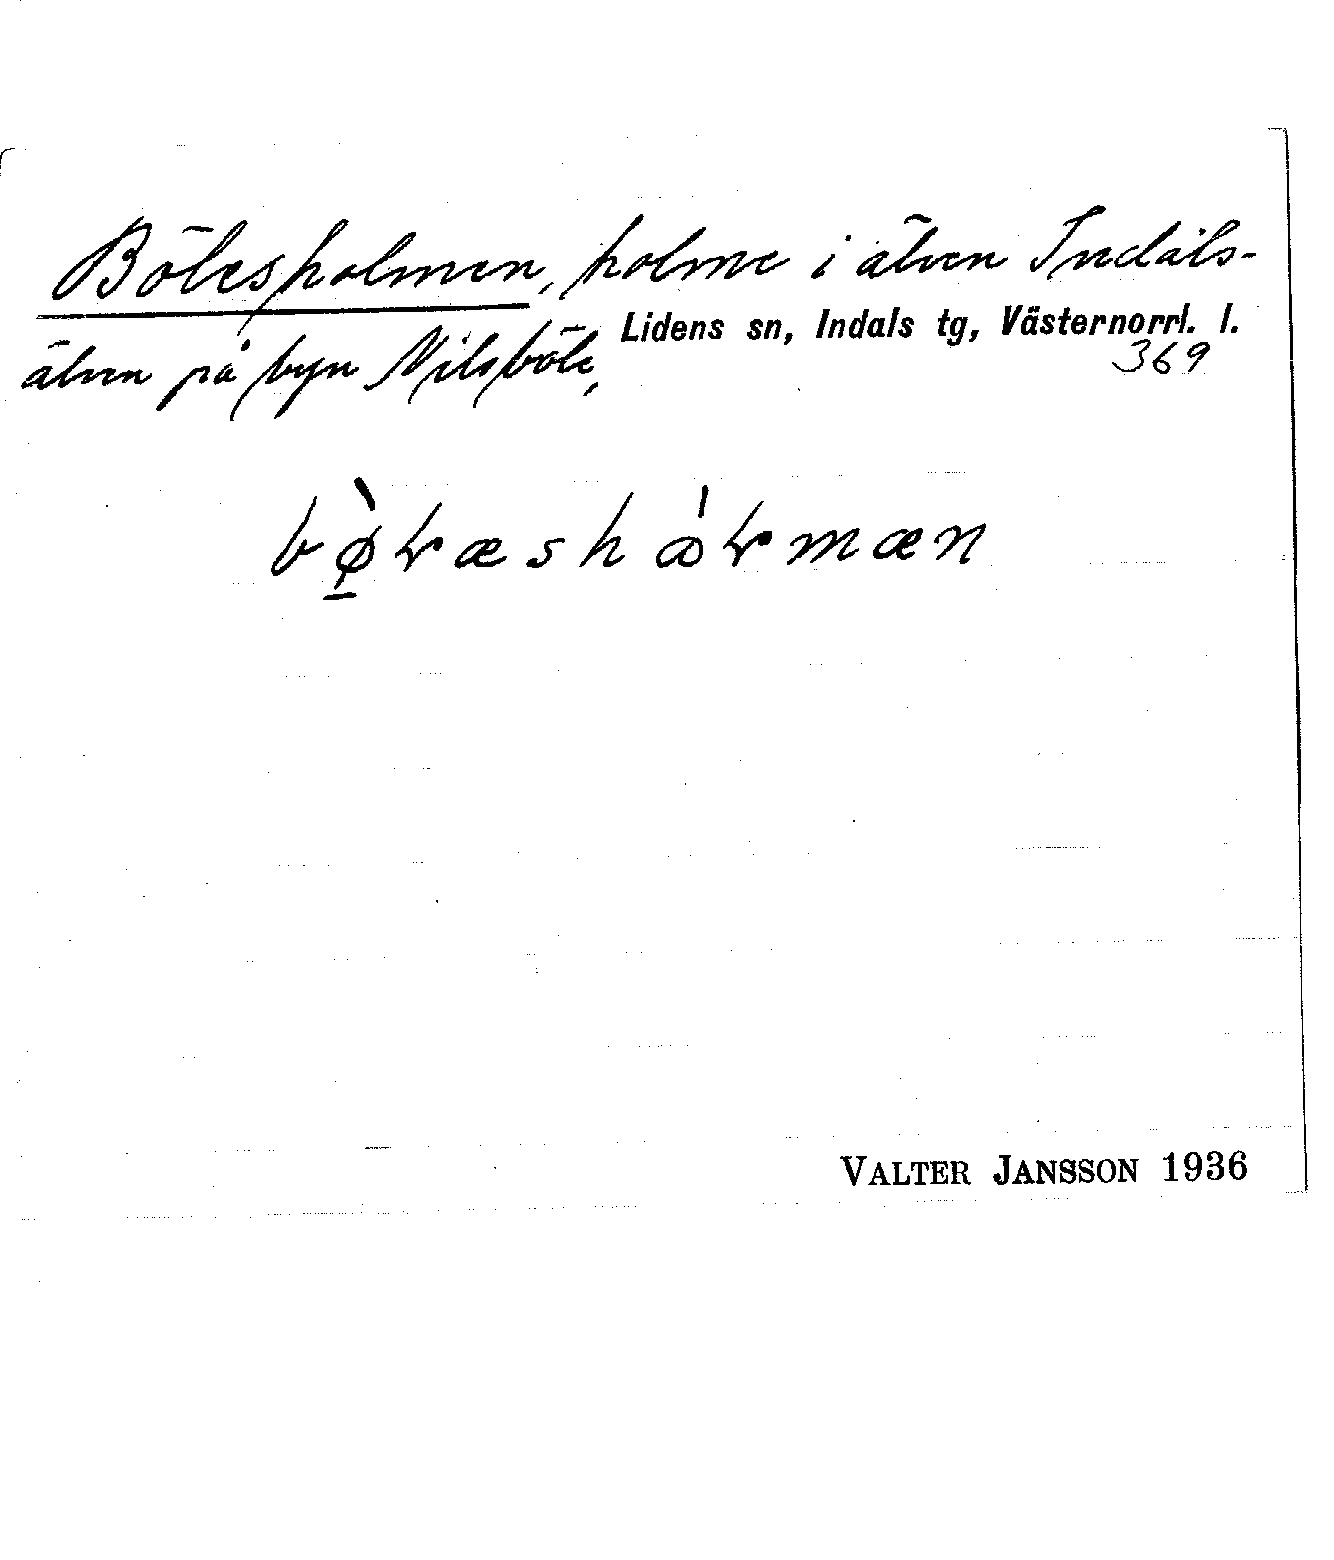 Bölesholmen, holme i älven Indals-
älven på byn Nilsböle, Lidens sn, Indals tg, Västernorrl. l.
369
VALTER JANSSON 1936